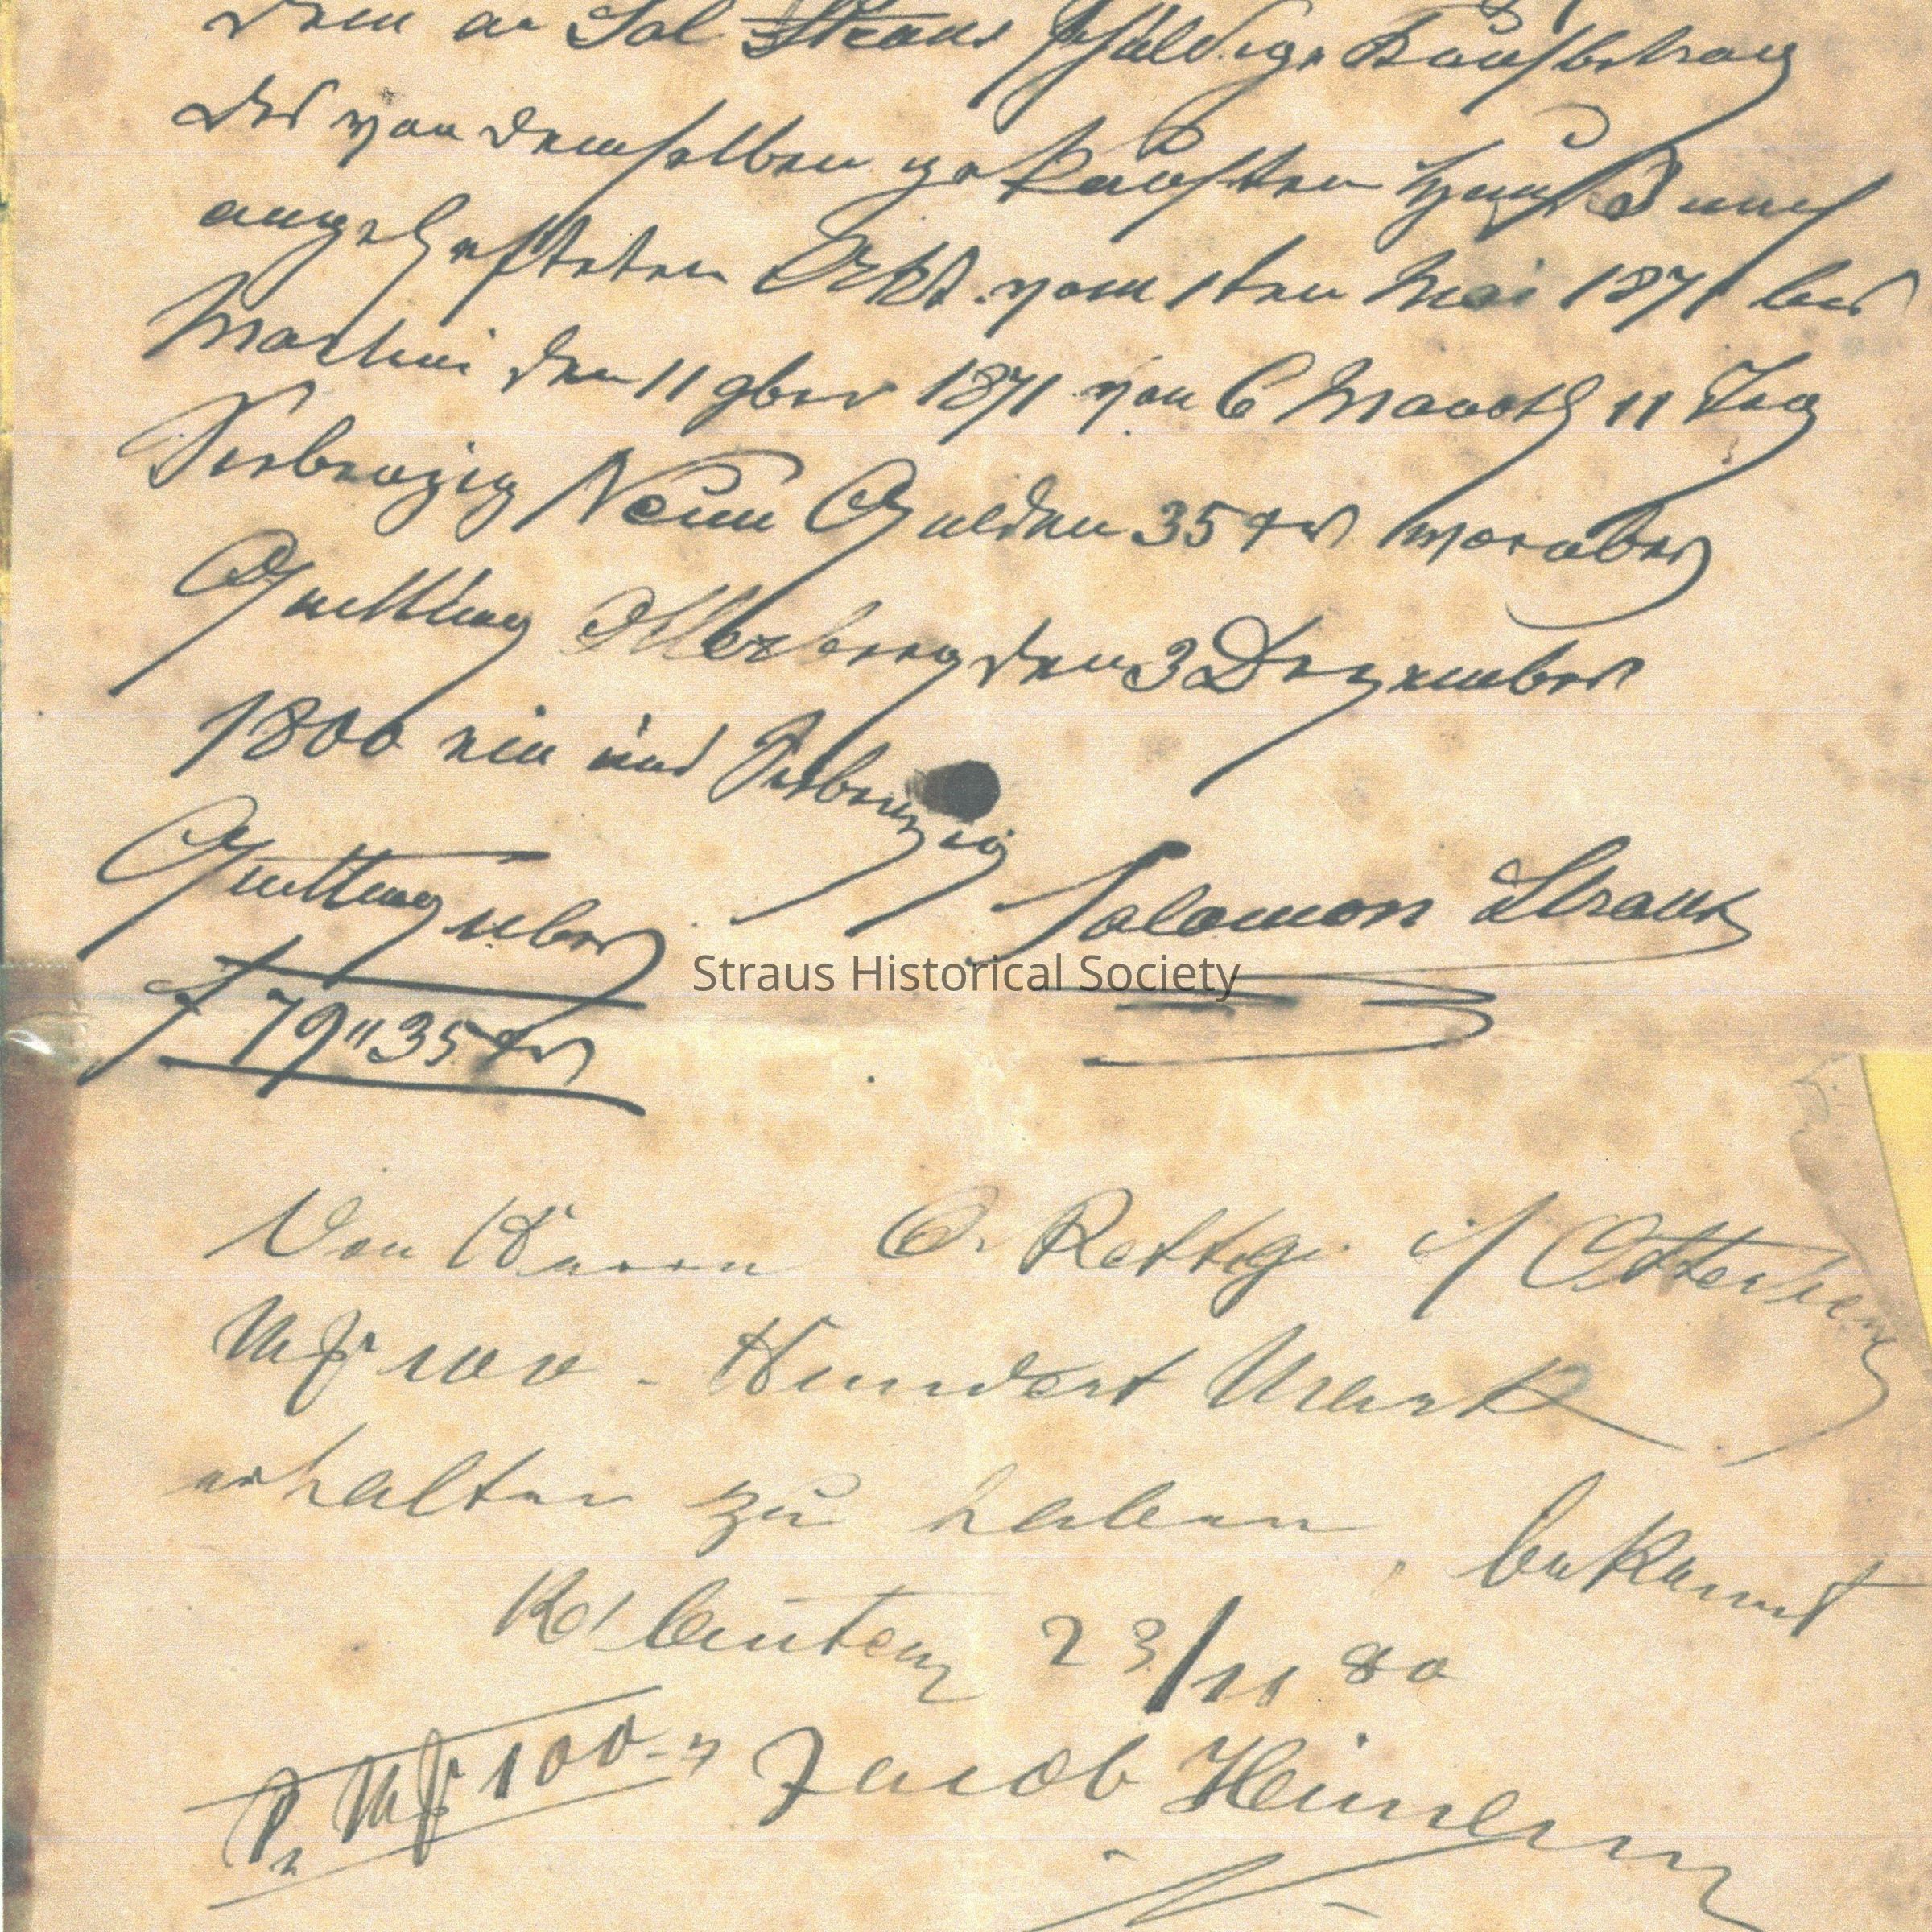 dem an Sal Straus schuldige Kaufbetrag
des von demselben gekauften Hauses nach
angehefteten Akt vom 1ten Mai 1871 bis
Martini den 11 9ber 1871 von 6 Monath 11 Tag
Siebenzig Neun Gulden 35 xr worüber
Quittung Otterberg den 3 Dezember
1800 ein und Siebenzig
Salomon Straus
Quittung über
f 79"35 xr
Straus Historical Society
Von Herrn Rettig Otterberg
Mk 100 - Hundert Mark
erhalten zu haben, bekennt
Ks'lautern 23/11 80
Mk 100.- Jacob